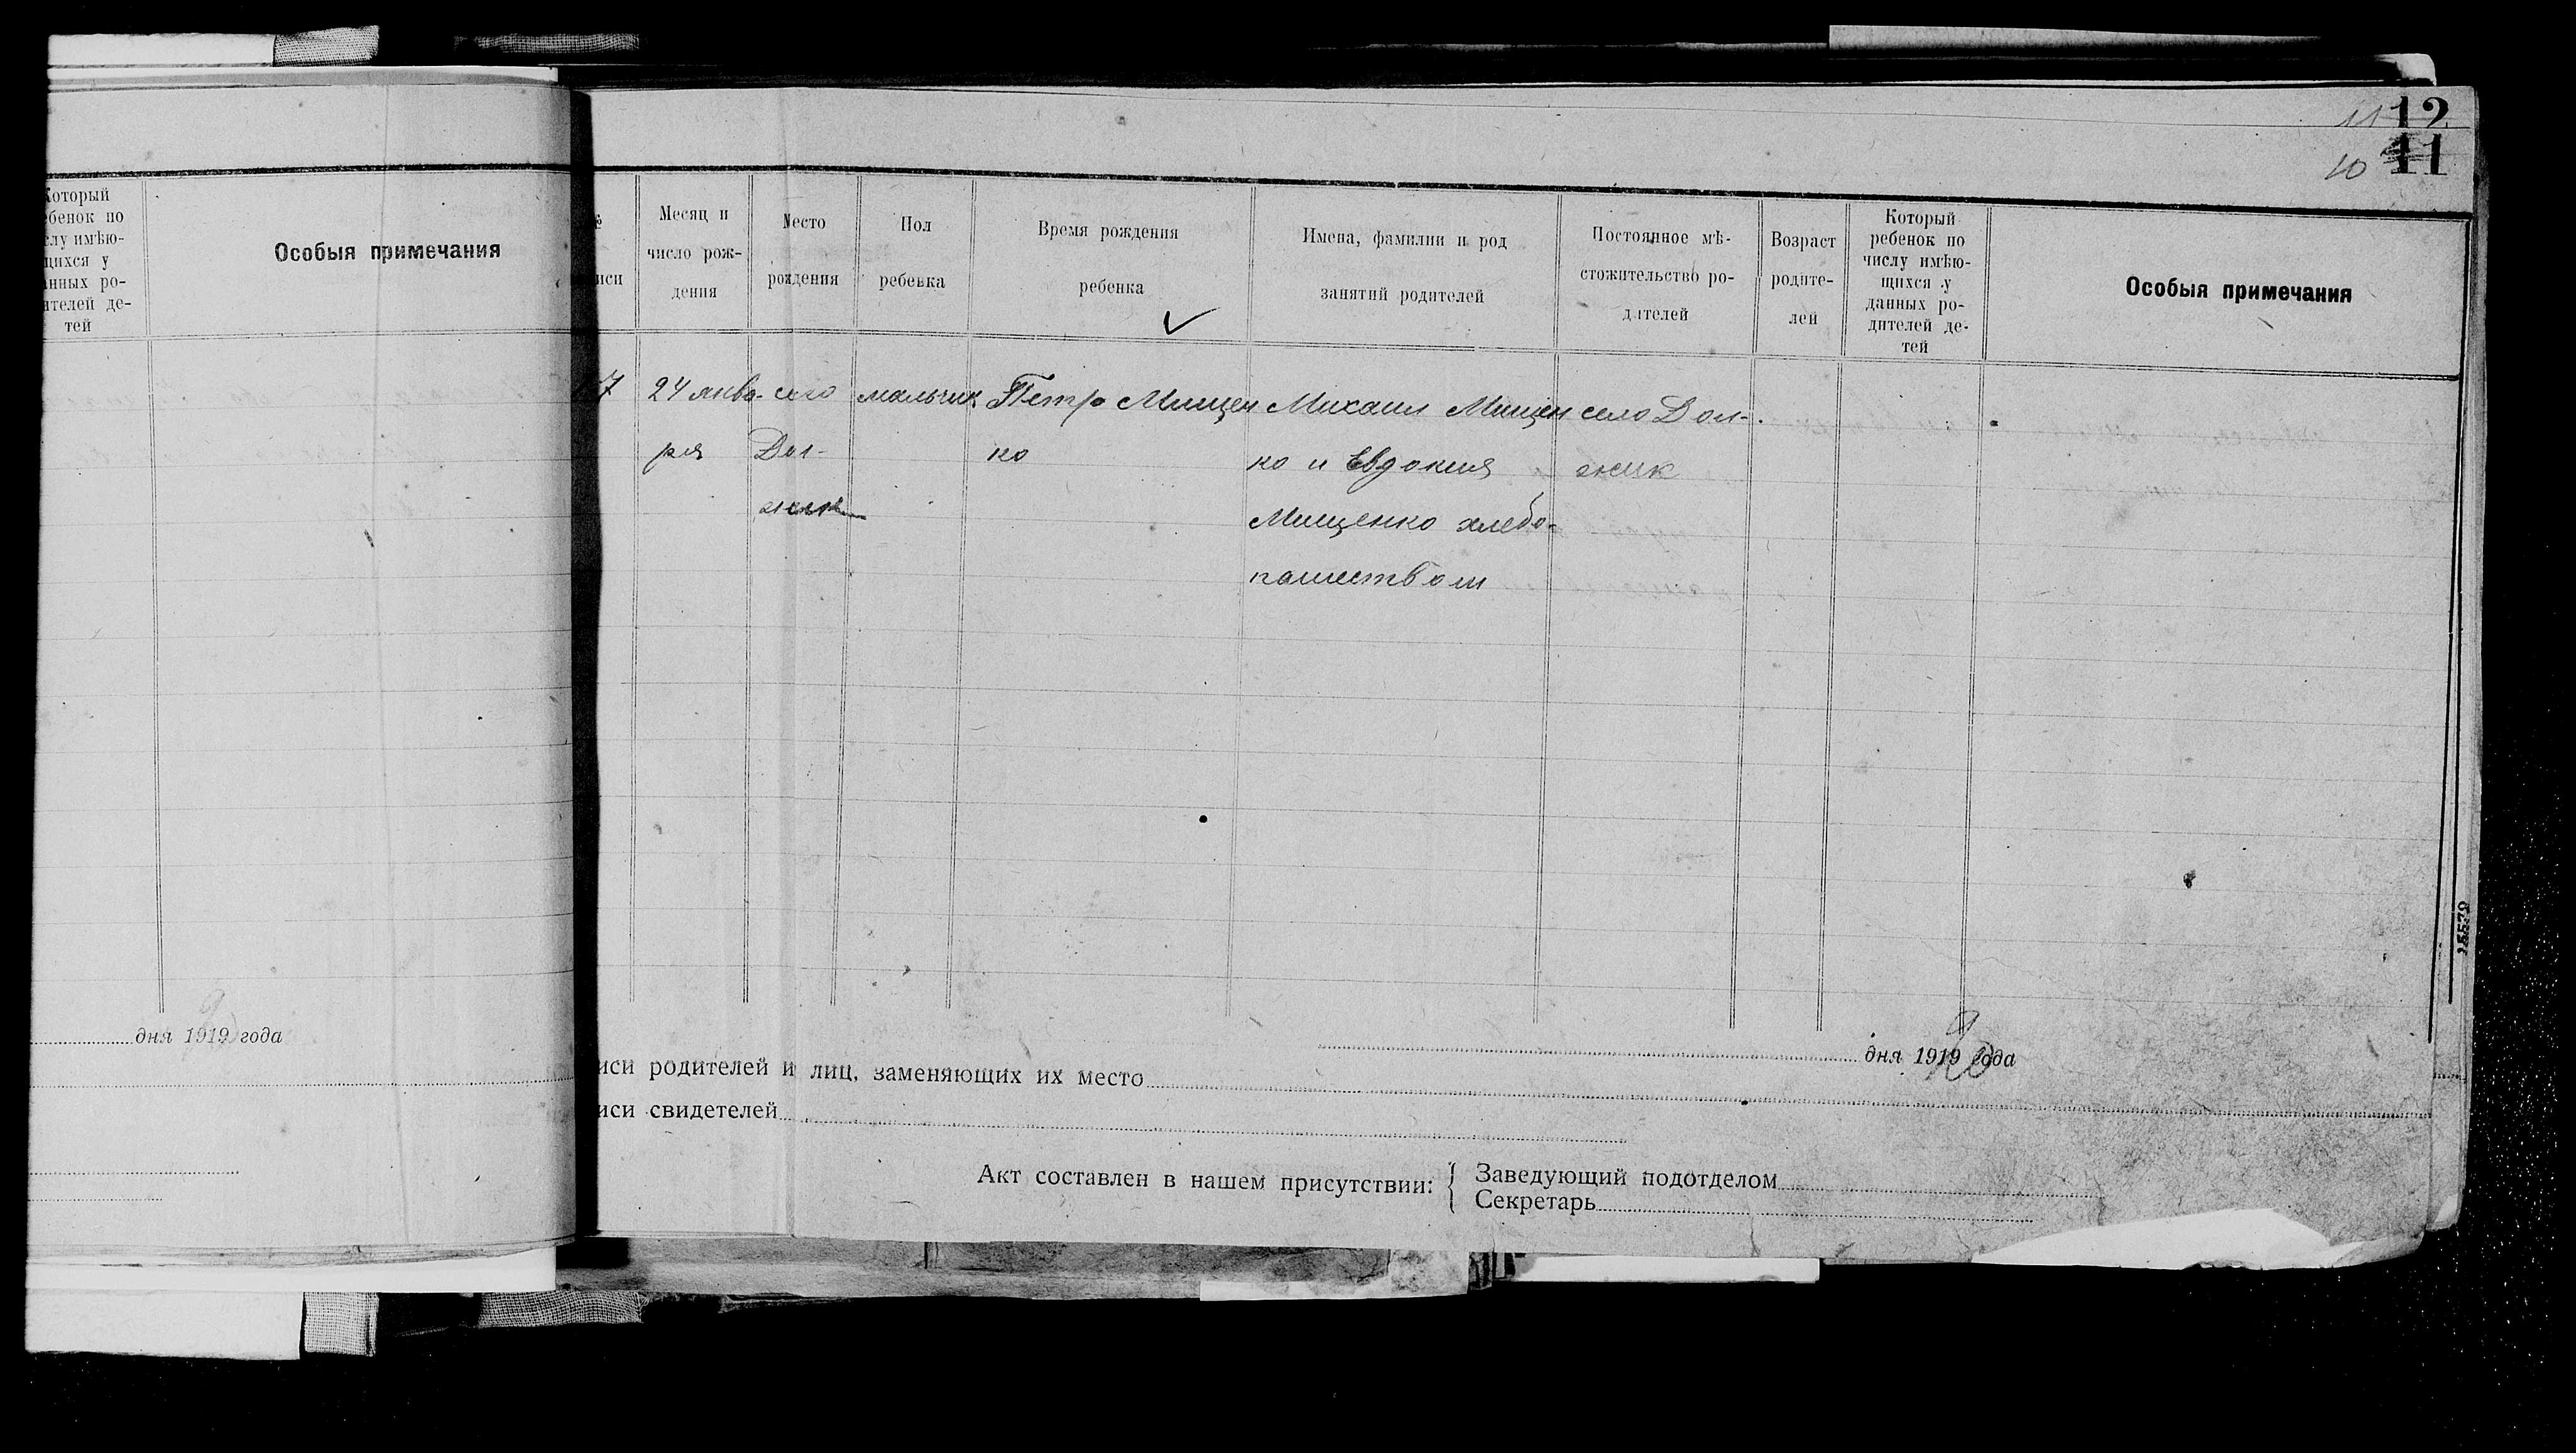 12
11
10 11
Который
ебенок по
слу имѣю-
щихся у
анных ро-
ителей де-
тей
Особыя примечания
дня 1919 года
№
иси
Месяц и
число рож-
дения
Место
рождения
Пол
ребенка
Время рождения
ребенка
Имена, фамилии и род
занятий родителей
Постоянное мѣ-
стожительство ро-
дителей
Возраст
родите-
лей
Который
ребенок по
числу имѣю-
щихся у
данных ро-
дителей де-
тей
Особыя примечания
7
24 янва-
ря
село
Дол-
жик
мальчик
Петр Мищен
ко
Михаил Мищен
ко и Евдокия
Мищенко хлебо-
пашеством
село Дол-
жик
дня 1919 года
иси родителей и лиц, заменяющих их место
иси свидетелей
Акт составлен в нашем присутствии:
Заведующий подотделом
Секретарь